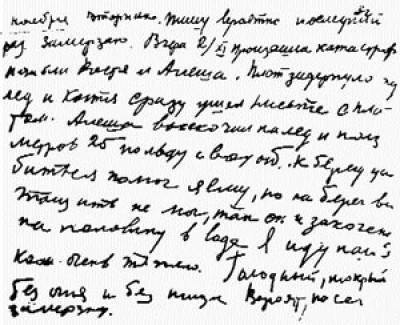 ноября вторник. Пишу вероятно последний
раз Замерзаю. Вчера 2/XI произошла катастроф
погибли Костя и Алеша. Плот задернуло под
лед и Костя сразу ушел вместе с пло
том. Алеша выскочил на лед и полз
метров 25 по льду с водой. К берегу про
биться помог я ему, но на берег вы
тащить не мог, так он и закочене
на половину в воде Я иду полз
ком. очень тяжело. Голодный, мокрый
без огня и без пищи Вероят, по сег
замерзну.